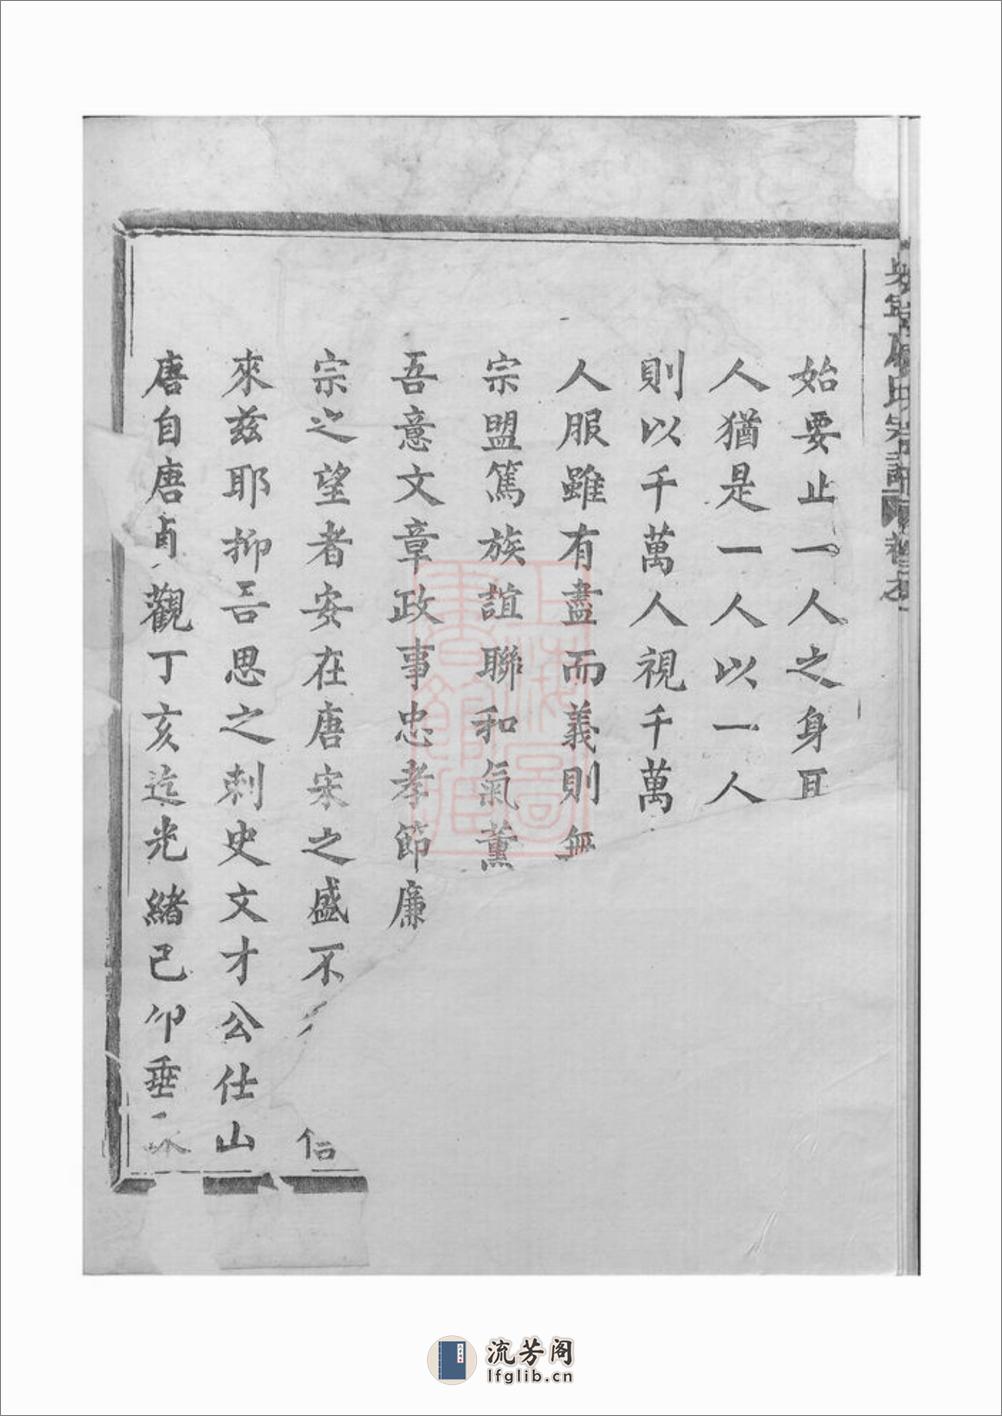 始要止一人之身
人猶是一人以一人
則以千萬人視千萬
人服雖有盡而義則無
宗盟篤族誼聯和氣薰
吾意文章政事忠孝節廉
宗之望者安在唐宋之盛不
仁
來茲耶抑吾思之刺史文才公仕山
唐自唐貞觀丁亥迄光緒己卯垂
上海圖書館藏
流芳阁
lfglib.cn